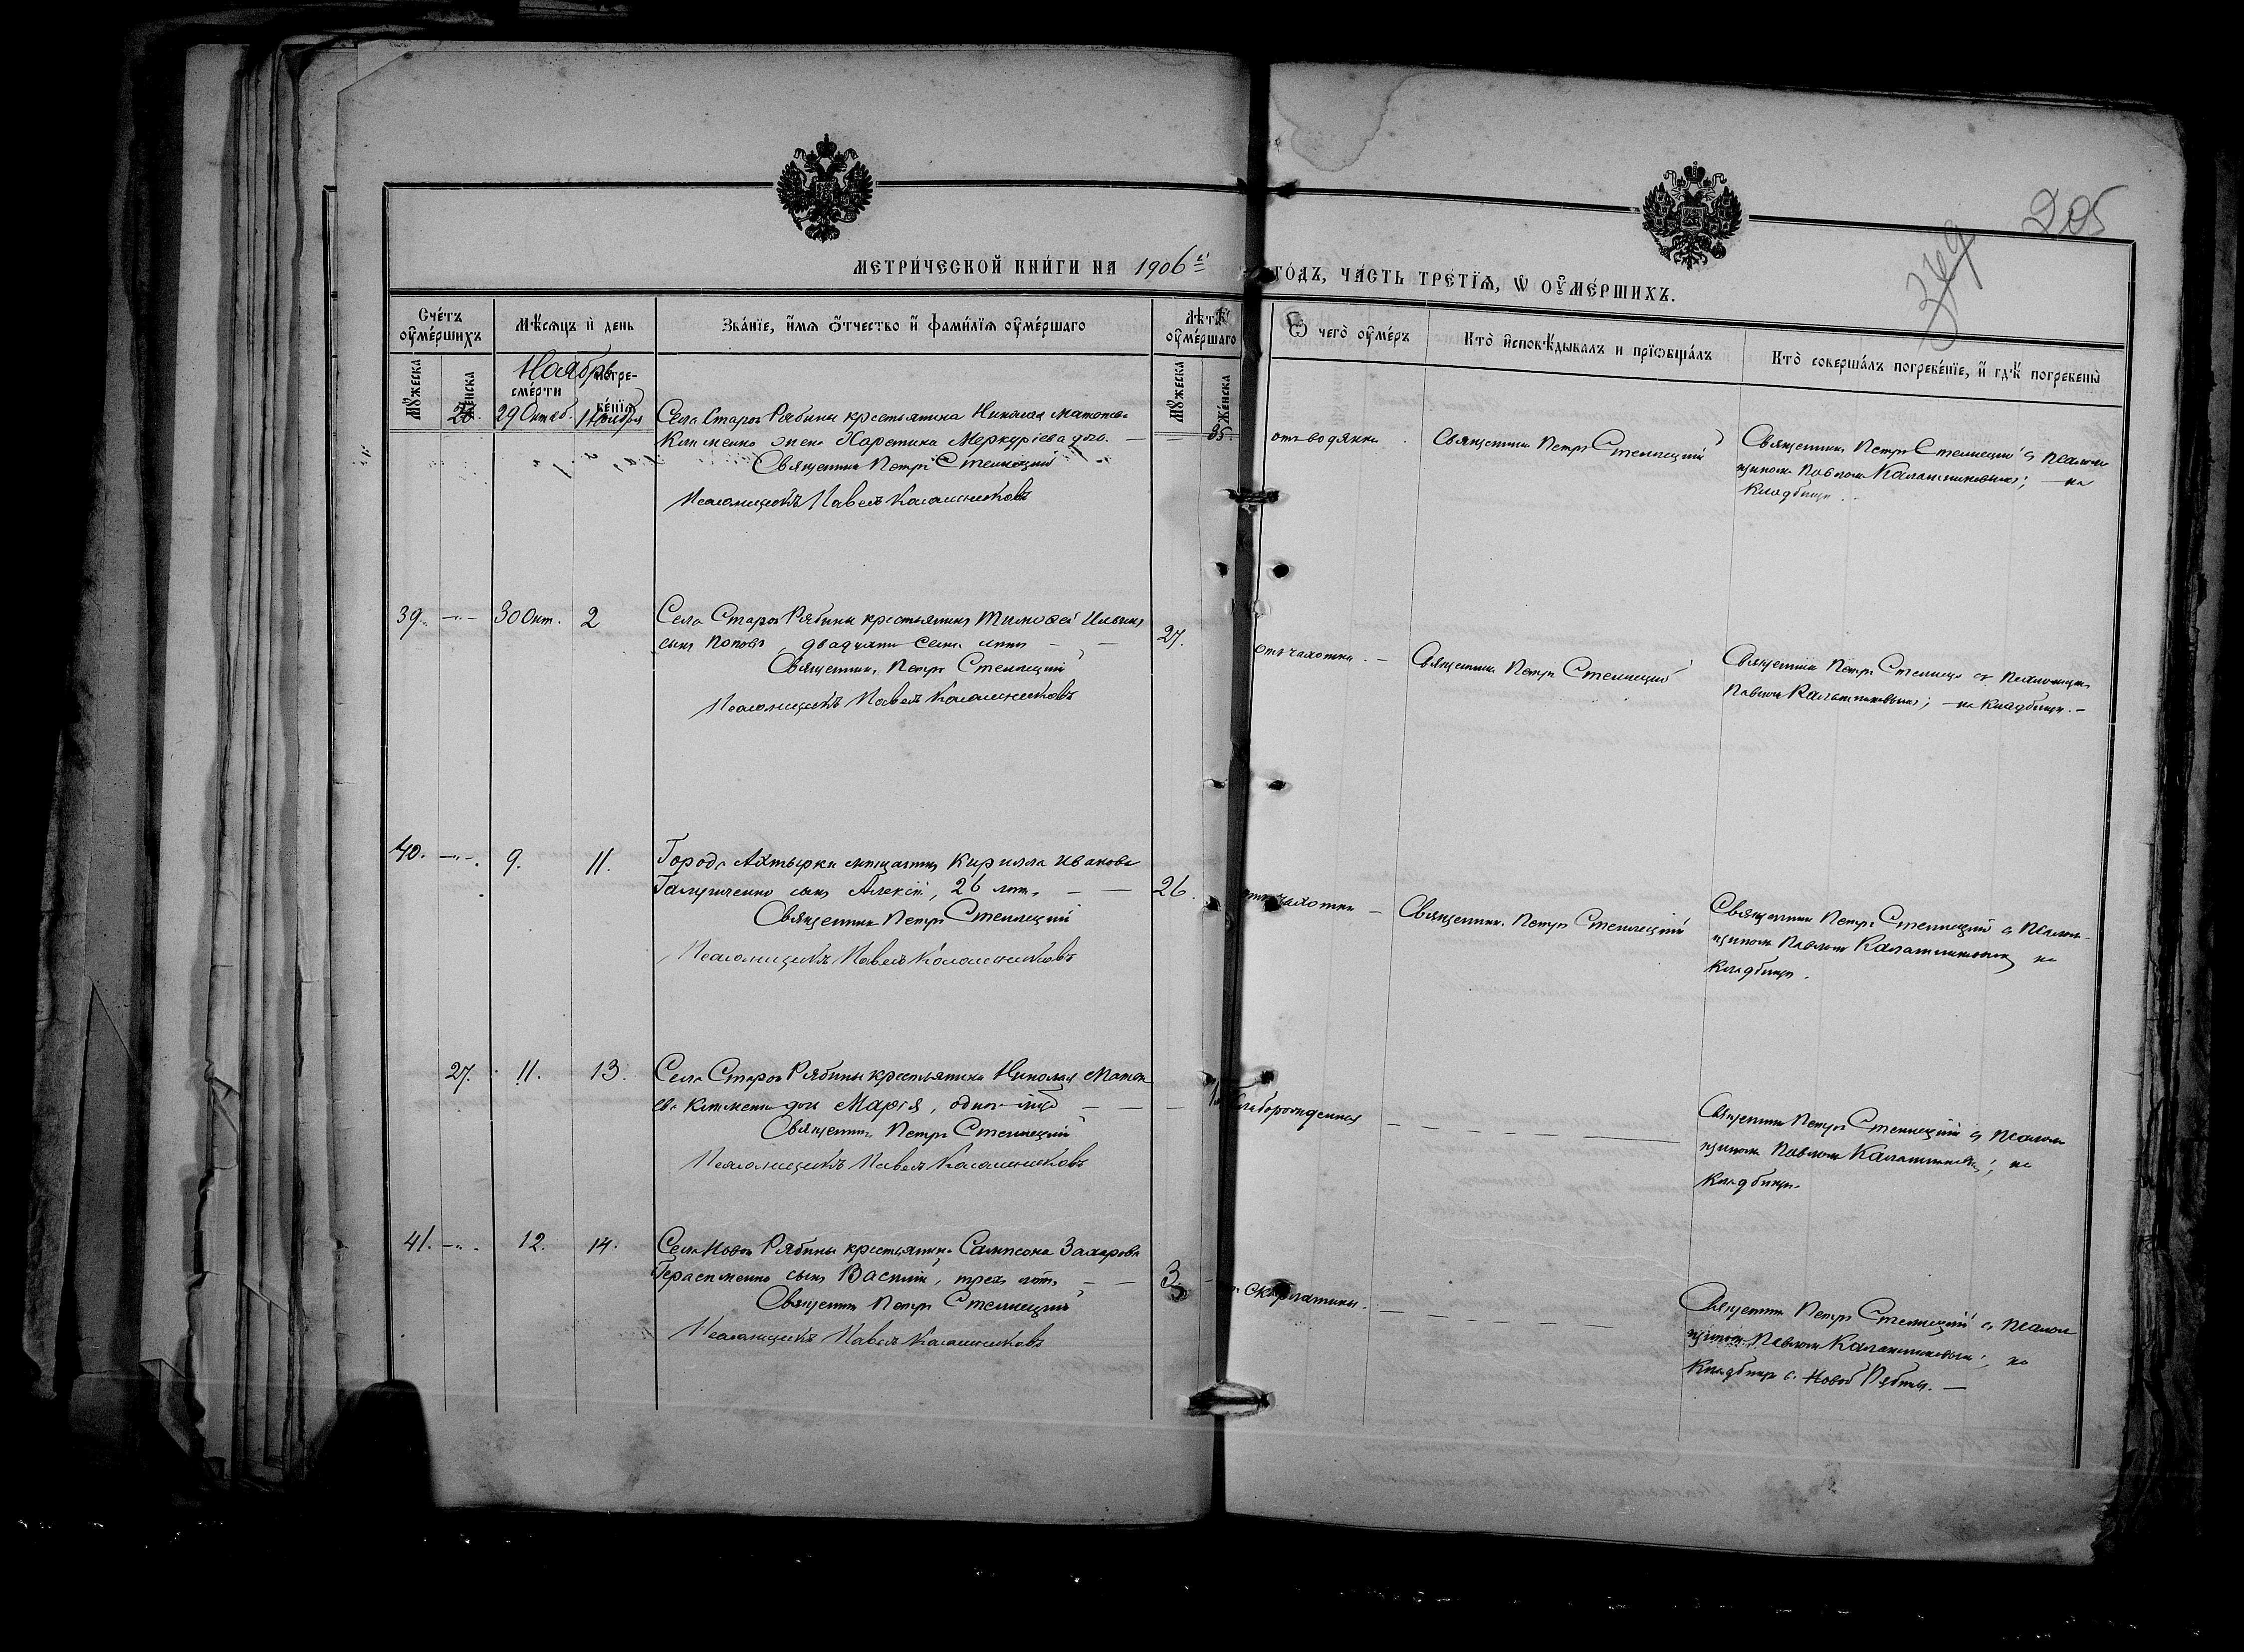 205
349
МЕТРИ́ЧЕСКОЙ КНИ́ГИ НА 1906й ГО́ДЪ, ЧА́СТЬ ТРЕ́ТЇѦ, Ѡ ОУ҆МЕ́РШИХЪ.
Сче́тъ оу҆ме́ршихъ
Мѣ́сѧцъ и҆ день
Зва́нїе, и҆́мѧ ѻ҆́тчество и҆ фами́лїѧ оу҆ме́ршаго
Лѣ́тѣ оу҆ме́ршаго
Ѿ чегѡ̀ оу҆ме́ръ
Кто̀ и҆сповѣ́дывалъ и прїѡбща́лъ
Кто̀ соверша́лъ погребе́нїе, и҆ гдѣ̀ погребены̀
Мꙋ́жеска
Же́нска
Ноябрь
сме́рти
погребе́нїѧ
Мꙋ́жеска
Же́нска
26. 29 Октяб. 1 Ноября Села Старой Рябины крестьянина Николая
Клименко жена Харетина Меркуріева
Священникъ Петръ Стеллецкий
Псаломщикъ Павелъ Калашниковъ
35. отъ водянки. Священникъ Петръ Стеллецкий
Священникъ Петръ Стеллецкий съ псалом
щикомъ Павломъ Калашниковымъ; — на
кладбище.
39. 30 Окт. 2 Села Старой Рябины крестьянинъ Тимоѳей Ильинъ
сынъ Поповъ, двадцати семи лѣтъ
Священникъ Петръ Стеллецкий
Псаломщикъ Павелъ Калашниковъ
27. отъ чахотки. — Священникъ Петръ Стеллецкий
Священникъ Петръ Стеллецк съ псаломщик
Павломъ Калашниковымъ; — на кладбище. —
40. 9. 11. Города Ахтырки мѣщанина Кирилла Иванова
сынъ Алексій, 26 лѣтъ
Священникъ Петръ Стеллецкий
Псаломщикъ Павелъ Калашниковъ
26. отъ чахотки — Священникъ Петръ Стеллецкий
Священникъ Петръ Стеллецкий съ псалом-
щикомъ Павломъ Калашниковымъ на
кладбище.
27. 11. 13. Села Старой Рябины крестьянина Николая
Клименко дочь Марія,
Священникъ Петръ Стеллецкий
Псаломщикъ Павелъ Калашниковъ
слаборожденная
Священникъ Петръ Стеллецкий съ псалом
щикомъ Павломъ Калашниковы; на
кладбище.
41. 12. 14. Села Новой Рябины крестьянина Сампсона Захарова
Герасименко сынъ Василій, трехъ лѣтъ
Священникъ Петръ Стеллецкий
Псаломщикъ Павелъ Калашниковъ
3. скарлатины.
Священникъ Петръ Стеллецкий съ псалом
щикомъ Павломъ Калашниковымъ, на
кладбище с. Новой Рябины. —